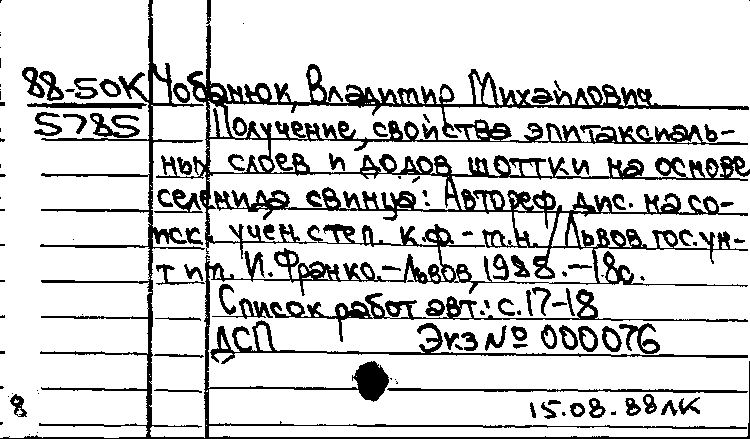 88-50К Чобанюк, Владимир Михайлович
5785 Получение, свойства эпитаксиаль-
ных слоев и додов шоттки на основе
селенида свинца: Автореф. дис. на со-
иск. учен. степ. к.ф.-м.н. / Львов. гос. ун-
т им. И. Франко.-Львов, 1988.-18с.
Список работ авт.: с.17-18
ДСП Экз № 000076
8 15.08.88 ЛК